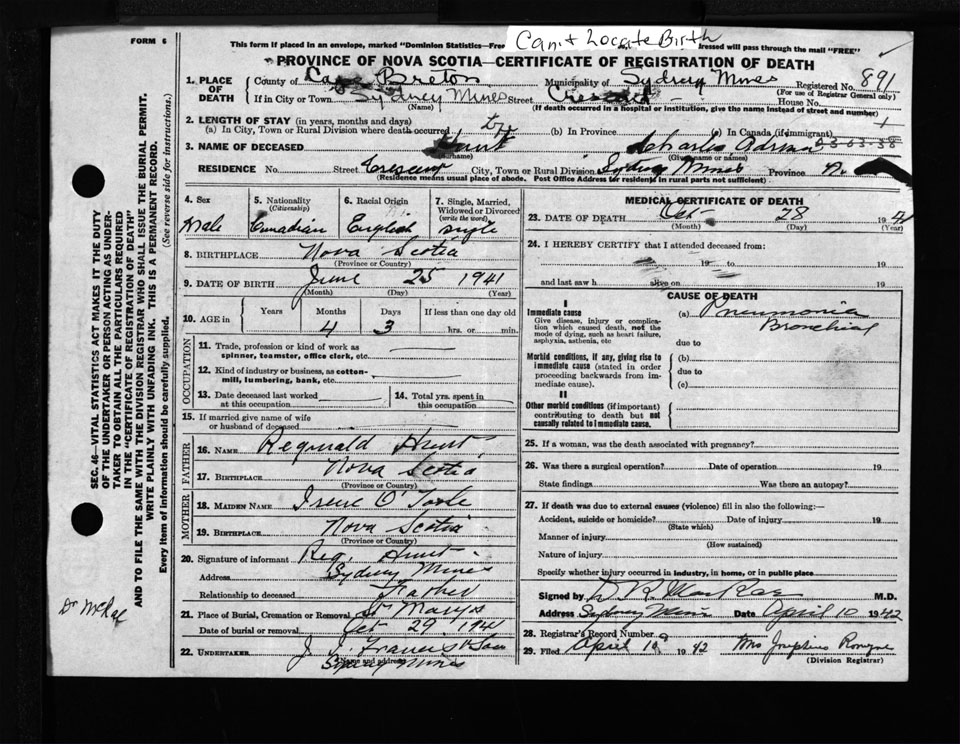 FORM 6
This form if placed in an envelope, marked "Dominion Statistics—Free
Can't Locate Birth
ressed will pass through the mail "FREE"
PROVINCE OF NOVA SCOTIA—CERTIFICATE OF REGISTRATION OF DEATH
1. PLACE OF DEATH
County of Cape Breton Municipality of Sydney Mines Registered No. 891
(For use of Registrar General only)
If in City or Town Sydney Mines Street Crescent House No.
(Name) (If death occurred in a hospital or institution, give the name instead of street and number)
2. LENGTH OF STAY (in years, months and days)
(a) In City, Town or Rural Division where death occurred (b) In Province (c) In Canada (if immigrant)
3. NAME OF DECEASED Hunt Charles
(Surname) (Given name or names)
RESIDENCE No. Street Crescent City, Town or Rural Division Sydney Mines Province N.
(Residence means usual place of abode. Post Office Address for residents in rural parts not sufficient)
4. Sex
Male
5. Nationality
(Citizenship)
Canadian
6. Racial Origin
English
7. Single, Married, Widowed or Divorced
(write the word)
single
8. BIRTHPLACE Nova Scotia
(Province or Country)
9. DATE OF BIRTH June 25 1941
(Month) (Day) (Year)
10. AGE in
Years
Months
4
Days
3
If less than one day old
hrs. or min.
OCCUPATION
11. Trade, profession or kind of work as
spinner, teamster, office clerk, etc.
12. Kind of industry or business, as cotton-
mill, lumbering, bank, etc.
13. Date deceased last worked
at this occupation
14. Total yrs. spent in
this occupation
15. If married give name of wife
or husband of deceased
FATHER
16. NAME Reginald Hunt
17. BIRTHPLACE Nova Scotia
(Province or Country)
MOTHER
18. MAIDEN NAME Irene O'Toole
19. BIRTHPLACE Nova Scotia
(Province or Country)
20. Signature of informant Reg. Hunt
Address Sydney Mines
Relationship to deceased Father
21. Place of Burial, Cremation or Removal St Mary's
Date of burial or removal Oct 29, 1941
22. UNDERTAKER J. J. Francis & Son
Name and address Sydney Mines
MEDICAL CERTIFICATE OF DEATH
23. DATE OF DEATH Oct 28 194
(Month) (Day) (Year)
24. I HEREBY CERTIFY that I attended deceased from:
19 to 19
and last saw h alive on 19
CAUSE OF DEATH
I
Immediate cause
Give disease, injury or complica-
tion which caused death, not the
mode of dying, such as heart failure,
asphyxia, asthenia, etc
(a) Pneumonia
Bronchial
due to
Morbid conditions, if any, giving rise to
immediate cause (stated in order
proceeding backwards from im-
mediate cause).
(b)
due to
(c)
II
Other morbid conditions (if important)
contributing to death but not
causally related to immediate cause.
25. If a woman, was the death associated with pregnancy?
26. Was there a surgical operation? Date of operation 19
State findings Was there an autopsy?
27. If death was due to external causes (violence) fill in also the following:
Accident, suicide or homicide? Date of injury 19
(State which)
Manner of injury
(How sustained)
Nature of injury
Specify whether injury occurred in industry, in home, or in public place
Signed by D R MacRae M.D.
Address Sydney Mines Date April 10 1942
28. Registrar's Record Number
29. Filed April 10 1942 Mrs Josephine
(Division Registrar)
SEC. 46—VITAL STATISTICS ACT MAKES IT THE DUTY
OF THE UNDERTAKER OR PERSON ACTING AS UNDER-
TAKER TO OBTAIN ALL THE PARTICULARS REQUIRED
IN THE "CERTIFICATE OF REGISTRATION OF DEATH"
AND TO FILE THE SAME WITH THE DIVISION REGISTRAR WHO SHALL ISSUE THE BURIAL PERMIT.
WRITE PLAINLY WITH UNFADING INK. THIS IS A PERMANENT RECORD.
Every item of information should be carefully supplied. (See reverse side for instructions.)
Dr McRae